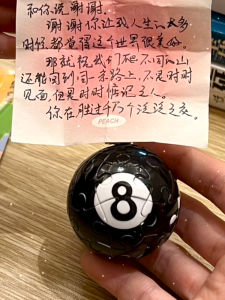 和你说谢谢.
谢谢你让我人生的大多
时候都觉得这个世界很美好。
那就祝我们爬不同的山
还能回到同一条路上，不足时时
见面，但是时时惦记之人。
你在胜过千万个泛泛之交。
PEACH
8